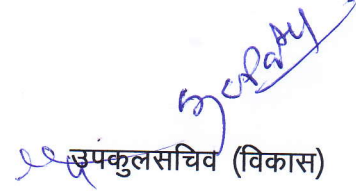 उपकुलसचिव (विकास)